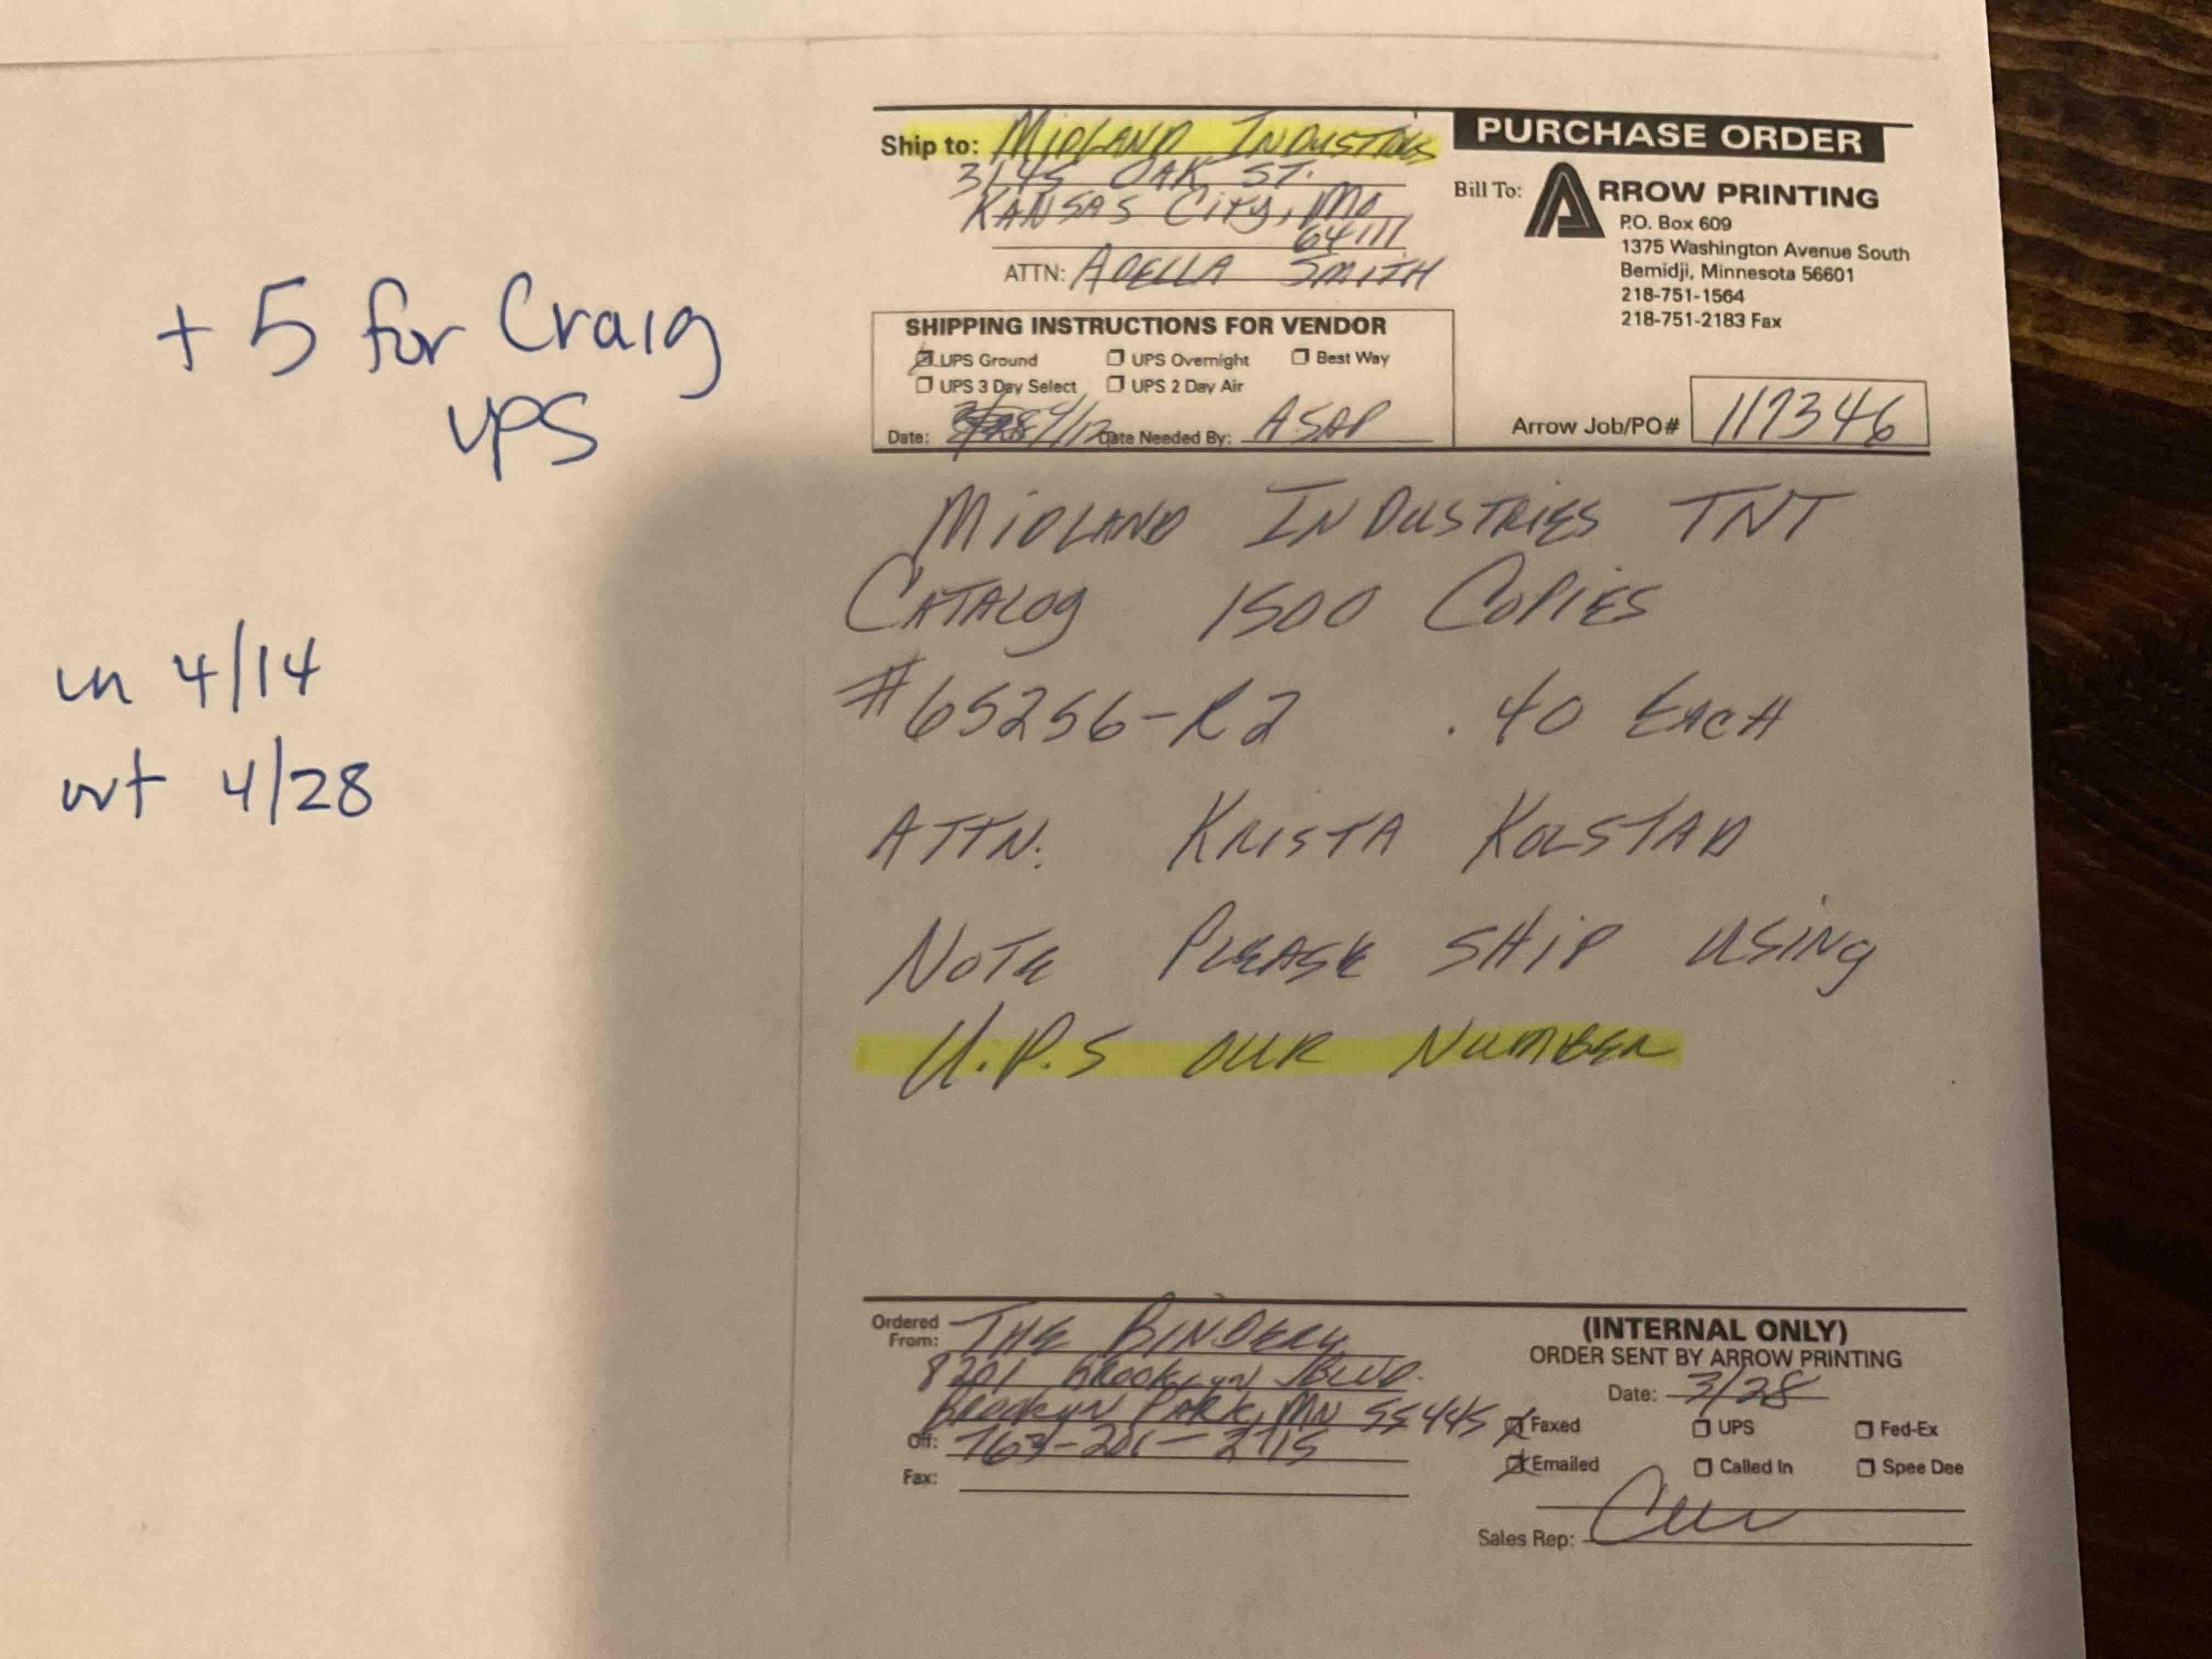 + 5 for Craig
UPS
in 4/14
out 4/28
PURCHASE ORDER
Ship to: MIDLAND INDUSTRIES
3145 OAK ST.
KANSAS CITY, MO
64111
ATTN: ADELLA SMITH
Bill To: ARROW PRINTING
P.O. Box 609
1375 Washington Avenue South
Bemidji, Minnesota 56601
218-751-1564
218-751-2183 Fax
SHIPPING INSTRUCTIONS FOR VENDOR
UPS Ground UPS Overnight Best Way
UPS 3 Day Select UPS 2 Day Air
Date: 4/12 Date Needed By: ASAP
Arrow Job/PO# 117346
MIDLAND INDUSTRIES TNT
CATALOG 1500 COPIES
#65256-R2 .40 EACH
ATTN: KRISTA KOLSTAD
NOTE PLEASE SHIP USING
U.P.S OUR NUMBER
Ordered From: THE BINDERY
8201 BROOKLYN BLVD.
BROOKYN PARK, MN 55445
Off: 763-201-2715
Fax:
(INTERNAL ONLY)
ORDER SENT BY ARROW PRINTING
Date: 3/28
Faxed UPS Fed-Ex
Emailed Called In Spee Dee
Sales Rep: